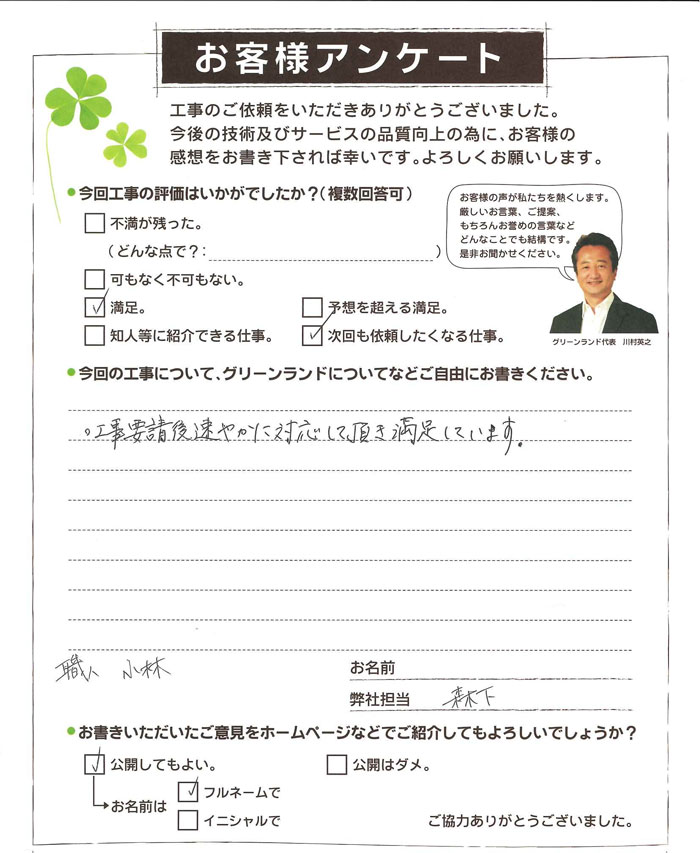 お客様アンケート
工事のご依頼をいただきありがとうございました。
今後の技術及びサービスの品質向上の為に、お客様の
感想をお書き下されば幸いです。よろしくお願いします。
今回工事の評価はいかがでしたか?(複数回答可)
お客様の声が私たちを熱くします。
厳しいお言葉、ご提案、
もちろんお誉めの言葉など
どんなことでも結構です。
是非お聞かせください。
不満が残った。
(どんな点で?: )
可もなく不可もない。
満足。 予想を超える満足。
知人等に紹介できる仕事。 次回も依頼したくなる仕事。
グリーンランド代表 川村英之
今回の工事について、グリーンランドについてなどご自由にお書きください。
。工事要請後速やかに対応して頂き満足しています。
職人 小林
お名前
弊社担当 森下
お書きいただいたご意見をホームページなどでご紹介してもよろしいでしょうか?
公開してもよい。 公開はダメ。
お名前は フルネームで
イニシャルで
ご協力ありがとうございました。